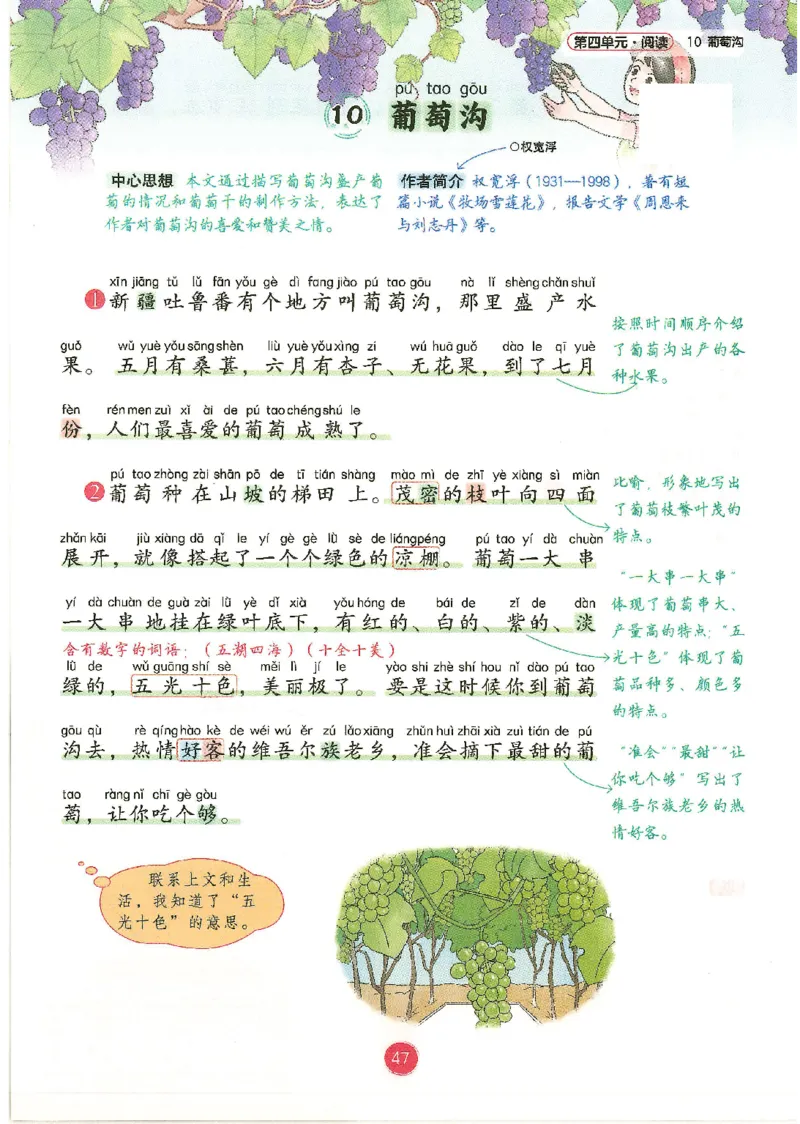 第四单元·阅读 10 葡萄沟
pú tao gōu
10 葡萄沟
权宽浮
中心思想 本文通过描写葡萄沟盛产葡
萄的情况和葡萄干的制作方法，表达了
作者对葡萄沟的喜爱和赞美之情。
作者简介 权宽浮（1931—1998），著有短
篇小说《牧场雪莲花》，报告文学《周恩来
与刘志丹》等。
xīn jiāng tǔ lǔ fān yǒu gè dì fang jiào pú tao gōu nà lǐ shèng chǎn shuǐ
1 新疆吐鲁番有个地方叫葡萄沟，那里盛产水
guǒ wǔ yuè yǒu sāng shèn liù yuè yǒu xìng zi wú huā guǒ dào le qī yuè
果。五月有桑葚，六月有杏子、无花果，到了七月
fèn rén men zuì xǐ ài de pú tao chéng shú le
份，人们最喜爱的葡萄成熟了。
按照时间顺序介绍
了葡萄沟出产的各
种水果。
pú tao zhòng zài shān pō de tī tián shàng mào mì de zhī yè xiàng sì miàn
2 葡萄种在山坡的梯田上。茂密的枝叶向四面
zhǎn kāi jiù xiàng dā qǐ le yí gè gè lǜ sè de liáng péng pú tao yí dà chuàn
展开，就像搭起了一个个绿色的凉棚。葡萄一大串
yí dà chuàn de guà zài lǜ yè dǐ xià yǒu hóng de bái de zǐ de dàn
一大串地挂在绿叶底下，有红的、白的、紫的、淡
含有数字的词语：（五湖四海）（十全十美）
lǜ de wǔ guāng shí sè měi lì jí le yào shi zhè shí hou nǐ dào pú tao
绿的，五光十色，美丽极了。要是这时候你到葡萄
gōu qù rè qíng hào kè de wéi wú ěr zú lǎo xiāng zhǔn huì zhāi xià zuì tián de pú
沟去，热情好客的维吾尔族老乡，准会摘下最甜的葡
tao ràng nǐ chī gè gòu
萄，让你吃个够。
比喻，形象地写出
了葡萄枝繁叶茂的
特点。
“一大串一大串”
体现了葡萄串大、
产量高的特点；“五
光十色”体现了葡
萄品种多、颜色多
的特点。
“准会”“最甜”“让
你吃个够”写出了
维吾尔族老乡的热
情好客。
联系上文和生
活，我知道了“五
光十色”的意思。
47